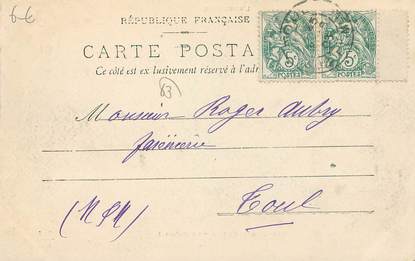 6-€
RÉPUBLIQUE FRANÇAISE
CARTE POSTA
Ce côté est exclusivement réservé à l'adr
13
5c 5c
POSTES POSTES
Monsieur Roger Aubry
Faïencerie
Toul
(M&M)